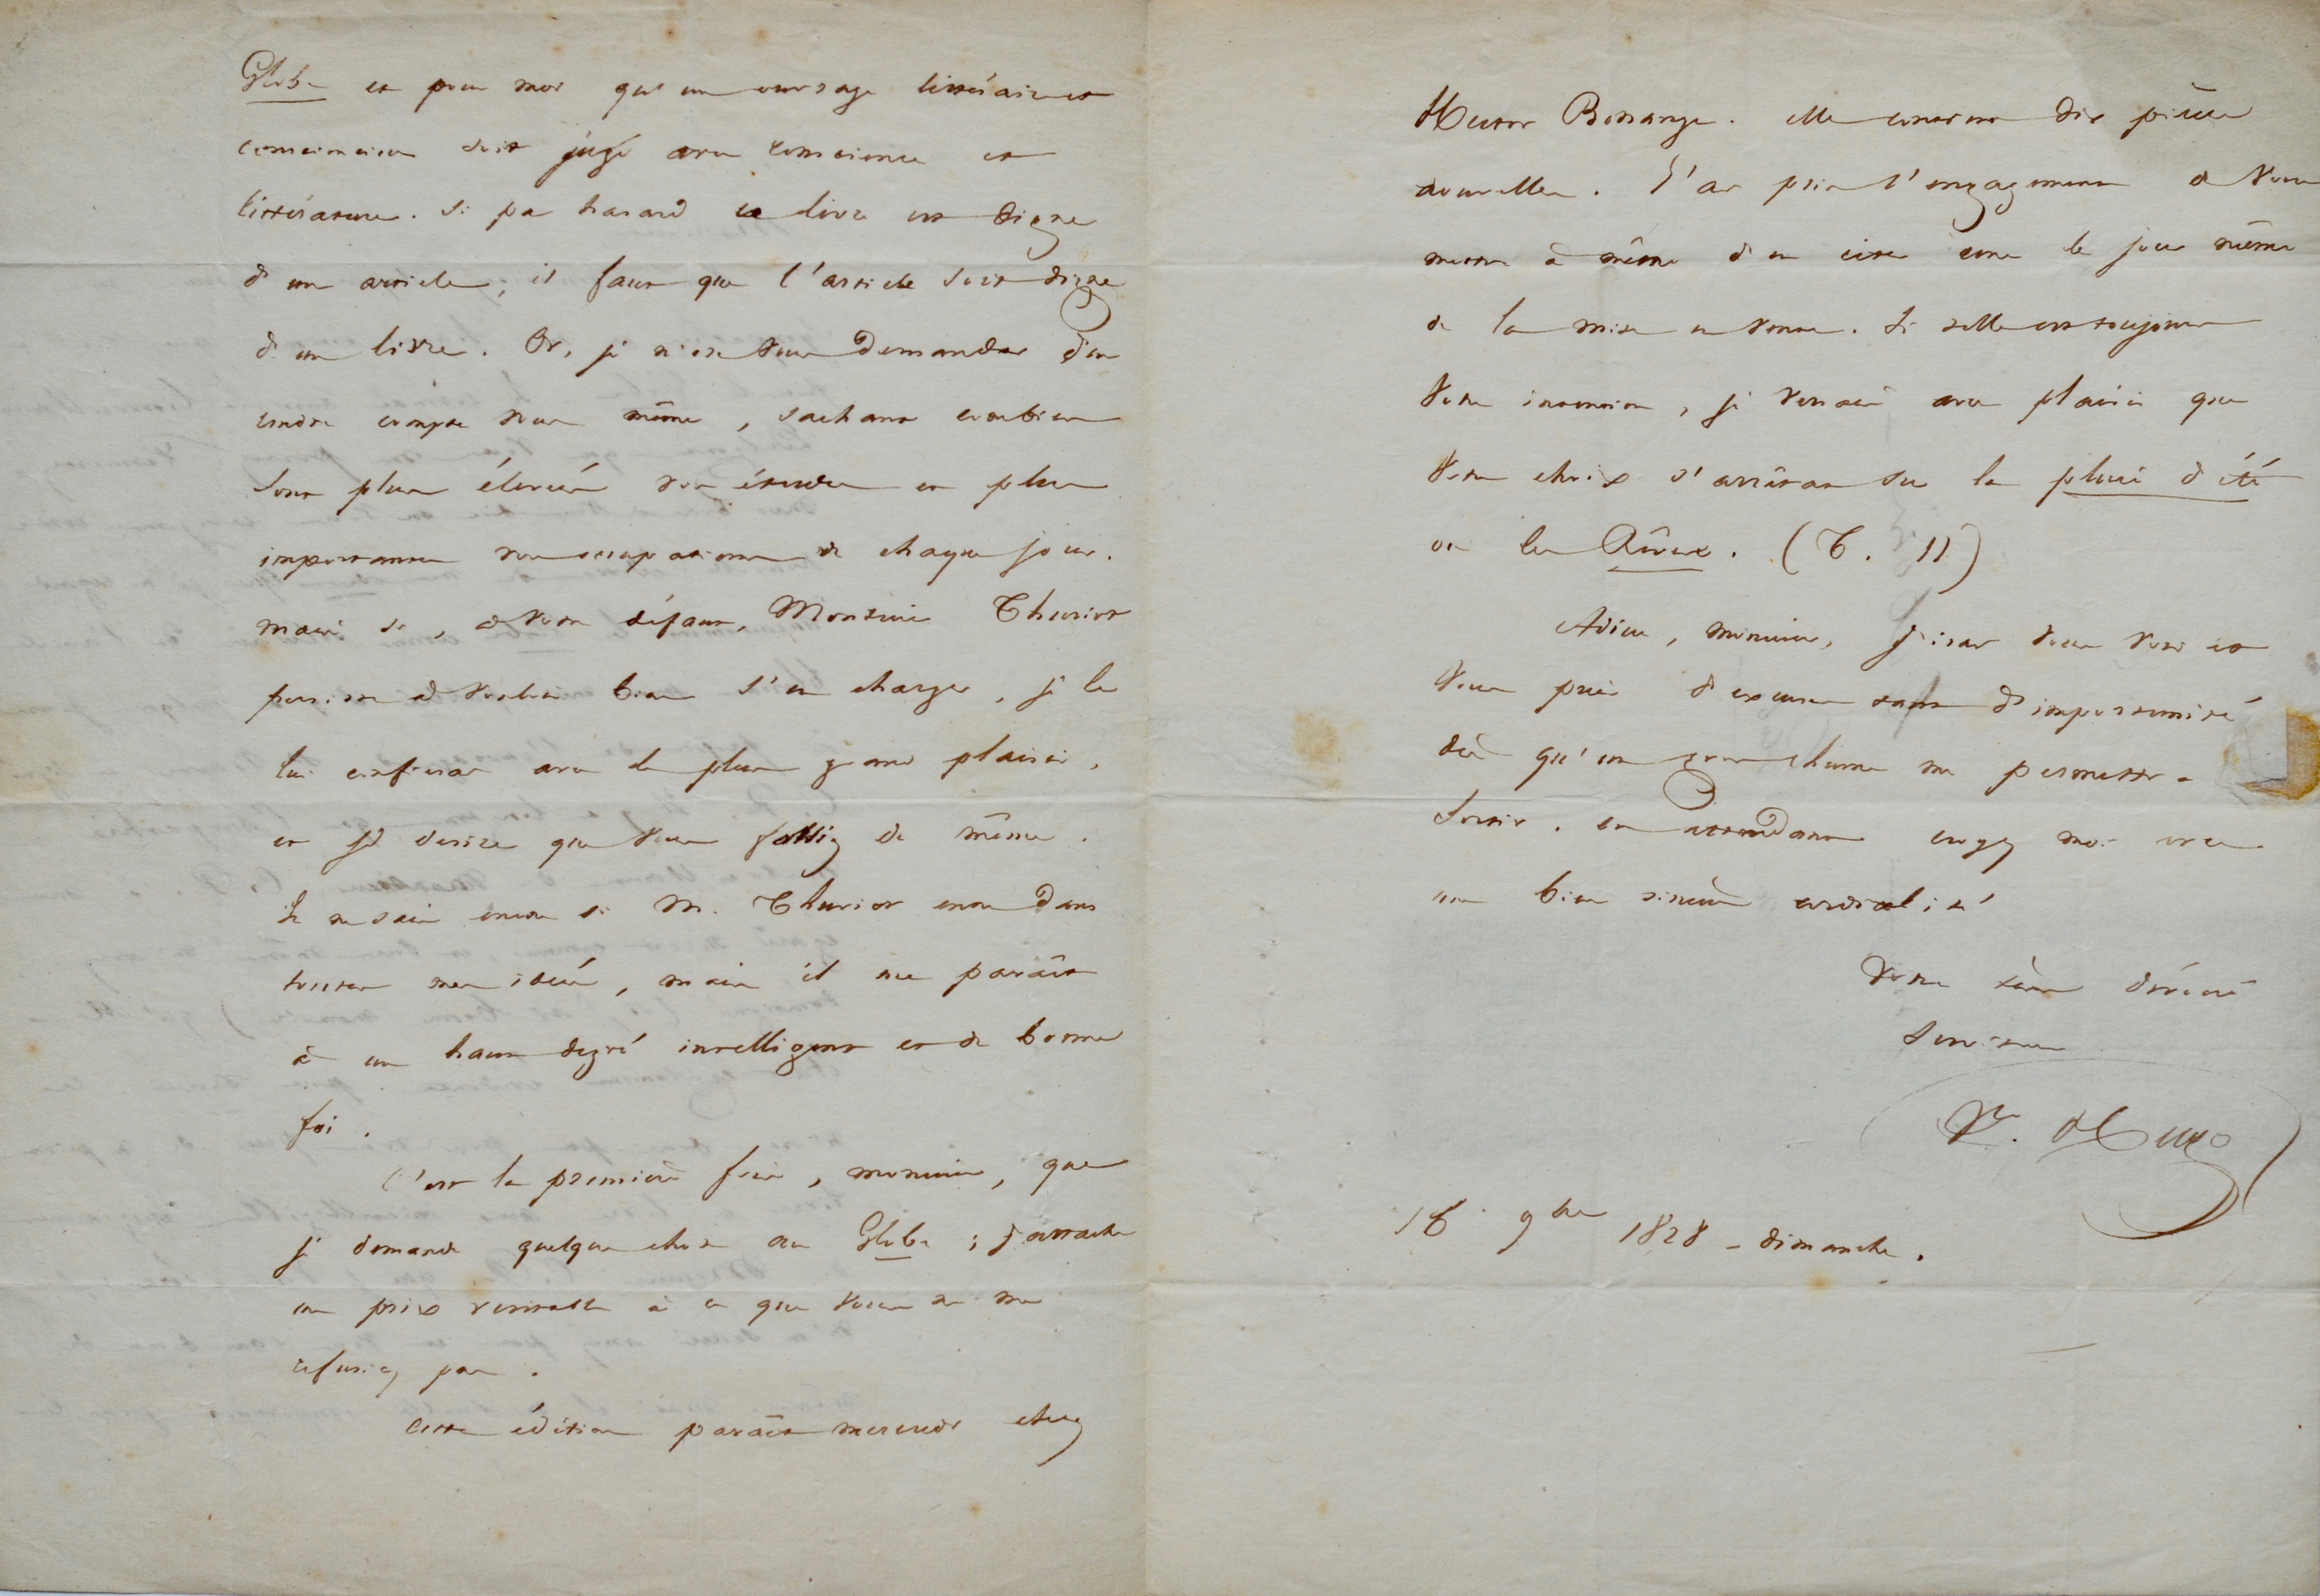 Globe et pour moi qu'un ouvrage littéraire et
consciencieux soit jugé avec conscience et
littérature. Si par hasard ce livre est digne
d'un article, il faut que l'article soit digne
d'un livre. Or, je n'ose vous demander d'en
rendre compte vous même, sachant combien
sont plus élevées vos études et plus
importantes vos occupations de chaque jour.
mais si, à votre défaut, Monsieur Thuriot
puisse à vouloir bien s'en charger, je le
lui confierai avec le plus grand plaisir,
et je désire que vous fassiez de même.
Je ne sais encore si M. Thuriot entre dans
toutes mes idées, mais il me paraît
à un haut degré intelligent et de bonne
foi.
C'est la première fois, monsieur, que
je demande quelque chose au Globe ; j'attache
un prix véritable à ce que vous ne me
refusiez pas.
Cette édition paraît mercredi chez
Hector Bossange. elle contient dix pièces
nouvelles. J'ai pris l'engagement de vous
mettre à même d'en citer une le jour même
de la mise en vente. Si telle est toujours
votre intention, je verrais avec plaisir que
votre choix s'arrêtât sur la pluie d'été
ou les Rêves. (T. II)
Adieu, monsieur, j'irai vous voir et
vous prier d'excuser tant d'importunité
dès qu'un gros rhume me permettra
sortir. en attendant croyez moi avec
une bien sincère cordialité
Votre très dévoué
serviteur
Vor. Hugo
16 9bre 1828 - dimanche.